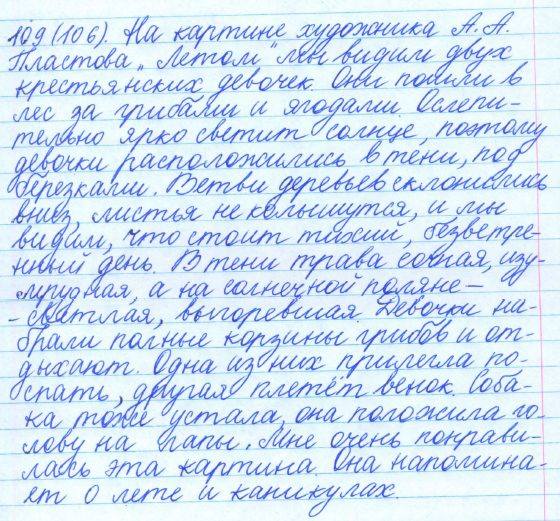 109(106). На картине художника А. А.
Пластова „Летом" мы видим двух
крестьянских девочек. Они пошли в
лес за грибами и ягодами. Ослепи-
тельно ярко светит солнце, поэтому
девочки расположились в тени, под
берёзками. Ветви деревьев склонились
вниз, листья не колышутся, и мы
видим, что стоит тихий, безветре-
нный день. В тени трава сочная, изу-
мрудная, а на солнечной поляне –
- светлая, выгоревшая. Девочки на-
брали полные корзины грибов и от-
дыхают. Одна из них прилегла по-
спать, другая плетёт венок. Соба-
ка тоже устала, она положила го-
лову на лапы. Мне очень понрави-
лась эта картина. Она напомина-
ет о лете и каникулах.